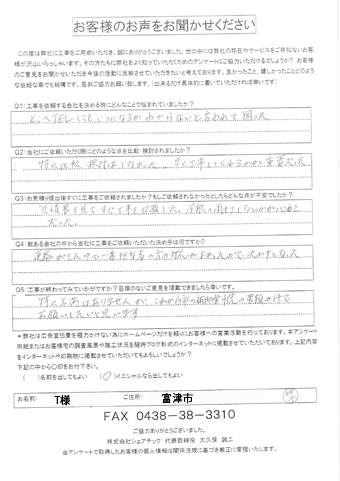 お客様のお声をお聞かせください
この度は弊社に工事をご用命いただき、誠にありがとうございました。世の中には弊社の存在やサービスをご存知ないお客
様が沢山いらっしゃいます。その方たちに弊社をよく知っていただくためのアンケートにご協力いただけるでしょうか？ お客様
のご意見をお聞かせいただき今後の活動に反映させていただきたいと考えております。良かったこと、嬉しかったことどのよう
な些細な事でも結構です。是非ご協力お願い致します。（出来るだけ具体的に書いていただければ幸いです）
Q1：工事を依頼する会社を決める時にどんなことで悩まれていましたか？
どこへTELしてもいつになるかわからないと言われて困った
Q2：当社にご依頼いただく際にどのような点を比較・検討されましたか？
特に比較、検討はしなかった。早く工事してくれるかが重要だった
Q3：お見積り提出後すぐに工事をご依頼されましたか？もしご依頼されなかったとしたらどんな点が不安でしたか？
見積書を見てすぐ工事を依頼した。
だった。
Q4：数ある会社の中から当社に工事をご依頼いただいた決め手は何ですか？
Q5：工事が終わってみていかがですか？忌憚のないご意見を頂戴できましたら幸いです。
特に不満はありませんが、これから市の補助金
お願いしたいと思います
＊弊社は広告宣伝費を極力かけない為にホームページだけを頼りにお客様への営業活動を行っております。本アンケート
用紙またはお客様宅の調査風景や施工状況を随時ブログ形式のインターネットに掲載させていただいております。上記内容
をインターネットや印刷物に掲載させていただいてもよろしいでしょうか？
下記の中から〇印をお付下さい。
（ ）名前を出してもよい （〇）イニシャルなら出してもよい
お名前： T様 ご住所： 富津市
FAX 0438-38-3310
ご協力ありがとうございました。
株式会社シェアテック 代表取締役 大久保 誠二
当アンケートで取得したお客様の個人情報は関係法規に基づき厳正に管理いたします。